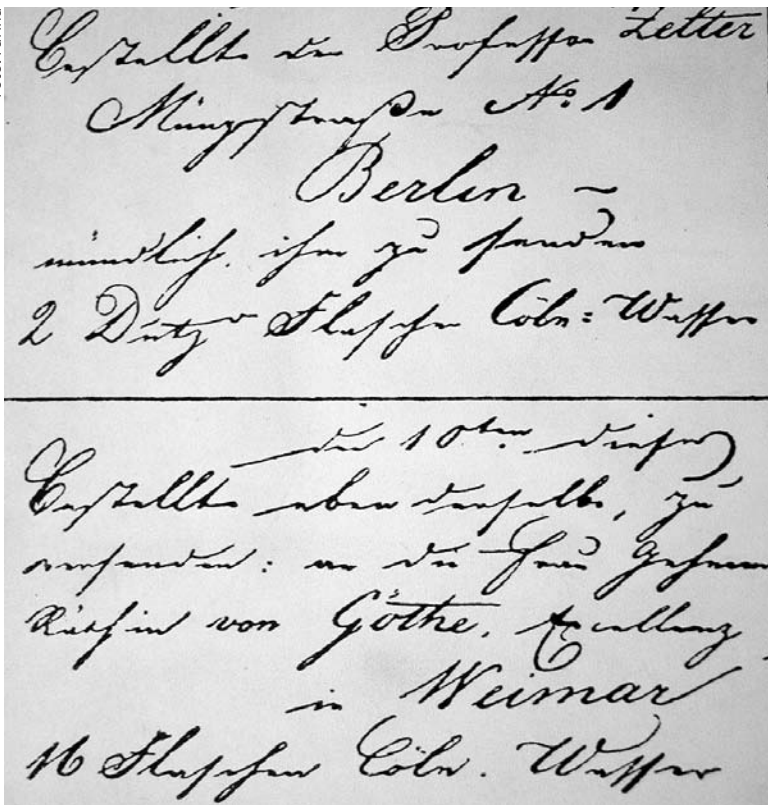 Bestellte der Professor Zelter
Münzstraße No. 1
Berlin –
mündlich, ihm zu senden
2 Dutz. Flaschen Cöln: Wasser
den 10ten dieses
Bestellte eben derselbe, zu
versenden: an die Frau Geheime
Räthin von Göthe, Excellenz
in Weimar
16 Flaschen Cöln. Wasser